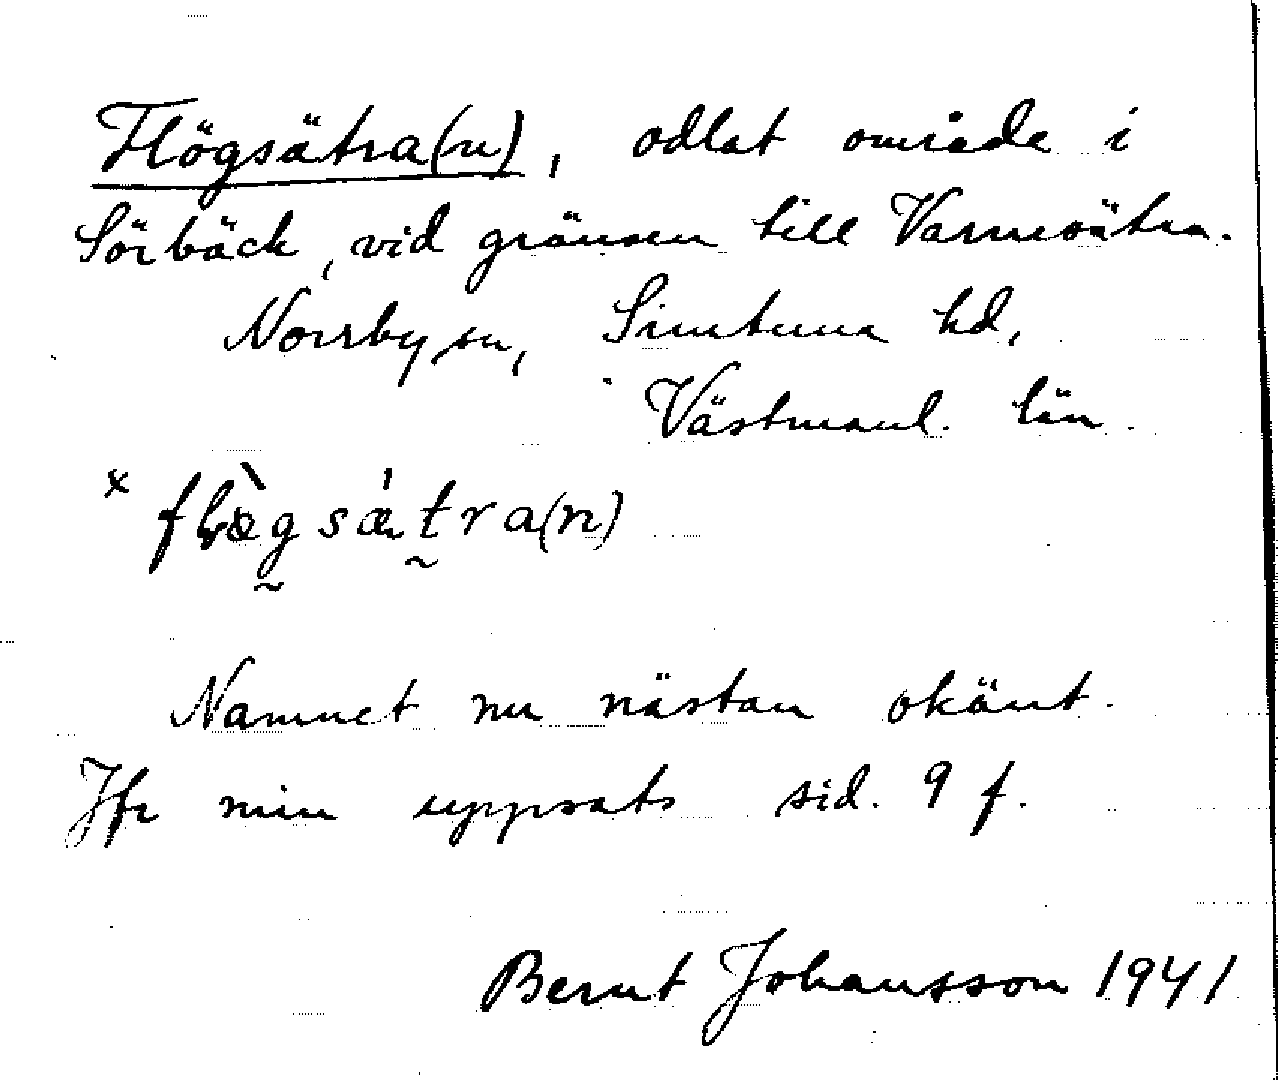 Flögsätra(n), odlat område i
Sörbäck, vid gränsen till Varmsätra.
Norrby sn, Simtuna hd,
Västmanl. län.
× flæ̀gsætra(n)
Namnet nu nästan okänt.
Jfr min uppsats sid. 9 f.
Bernt Johansson 1941